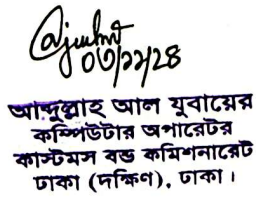 ০৩/১২/২৪
আব্দুল্লাহ আল যুবায়ের
কম্পিউটার অপারেটর
কাস্টমস বন্ড কমিশনারেট
ঢাকা (দক্ষিণ), ঢাকা।